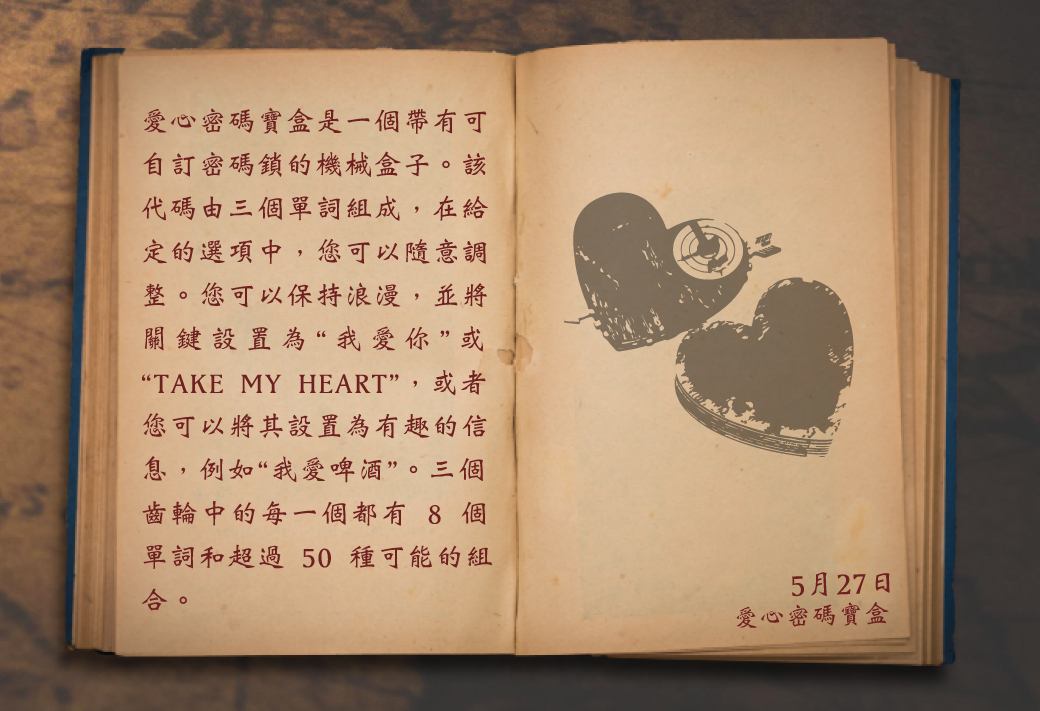 愛心密碼寶盒是一個帶有可
自訂密碼鎖的機械盒子。該
代碼由三個單詞組成，在給
定的選項中，您可以隨意調
整。您可以保持浪漫，並將
關鍵設置為“我愛你”或
“TAKE MY HEART”，或者
您可以將其設置為有趣的信
息，例如“我愛啤酒”。三個
齒輪中的每一個都有 8 個
單詞和超過 50 種可能的組
合。
5月27日
愛心密碼寶盒